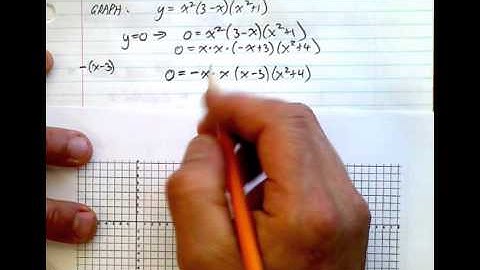 GRAPH: y = x²(3-x)(x²+1)
y=0 ⇒ 0 = x²(3-x)(x²+1)
0 = x·x·(-x+3)(x²+4)
-(x-3) 0 = -x·x(x-3)(x²+4)